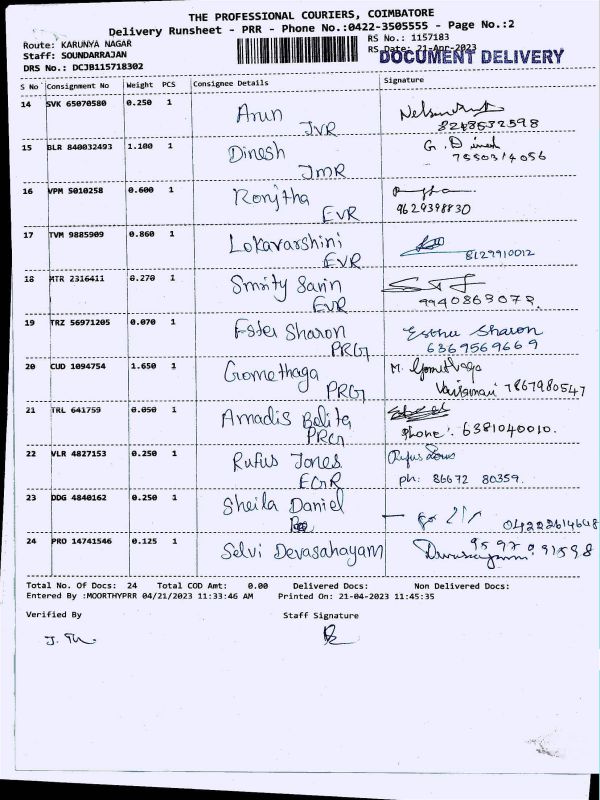 THE PROFESSIONAL COURIERS, COIMBATORE
Delivery Runsheet - PRR - Phone No.:0422-3505555 - Page No.:2
Route: KARUNYA NAGAR RS No.: 1157183
Staff: SOUNDARRAJAN RS Date: 21-Apr-2023
DRS No.: DCJB115718302 DOCUMENT DELIVERY
S No Consignment No Weight PCS Consignee Details Signature
14 SVK 65070580 0.250 1 Arun
JVR 8248532598
15 BLR 840032493 1.100 1 Dinesh G. Dinesh
JMR 7550314056
16 VPM 5010258 0.600 1 Ronjtha
EVR 9629398830
17 TVM 9885909 0.860 1 Lokavarshini
EVR 8129910012
18 MTR 2316411 0.270 1 Smrity Sarin
EVR 9940863073.
19 TRZ 56971205 0.070 1 Ester Sharon Esther Sharon
PRG 6369569669
20 CUD 1094754 1.650 1 Gomethaga M. Gomethaga
PRG 7867980547
21 TRL 641759 0.050 1 Amadis Belita
PRG Phone: 6381040010.
22 VLR 4827153 0.250 1 Rufus Jones Rufus Jones
EGR ph: 86672 80359.
23 DDG 4840162 0.250 1 Sheila Daniel
04222614648
24 PRO 14741546 0.125 1 Selvi Devasahayam
Total No. Of Docs: 24 Total COD Amt: 0.00 Delivered Docs: Non Delivered Docs:
Entered By :MOORTHYPRR 04/21/2023 11:33:46 AM Printed On: 21-04-2023 11:45:35
Verified By Staff Signature